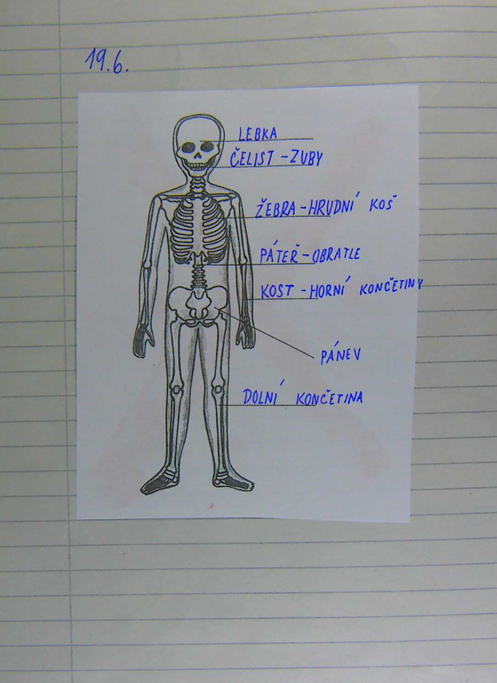 19.6.
LEBKA
ČELIST - ZUBY
ŽEBRA - HRUDNÍ KOŠ
PÁTEŘ - OBRATLE
KOST - HORNÍ KONČETINY
PÁNEV
DOLNÍ KONČETINA